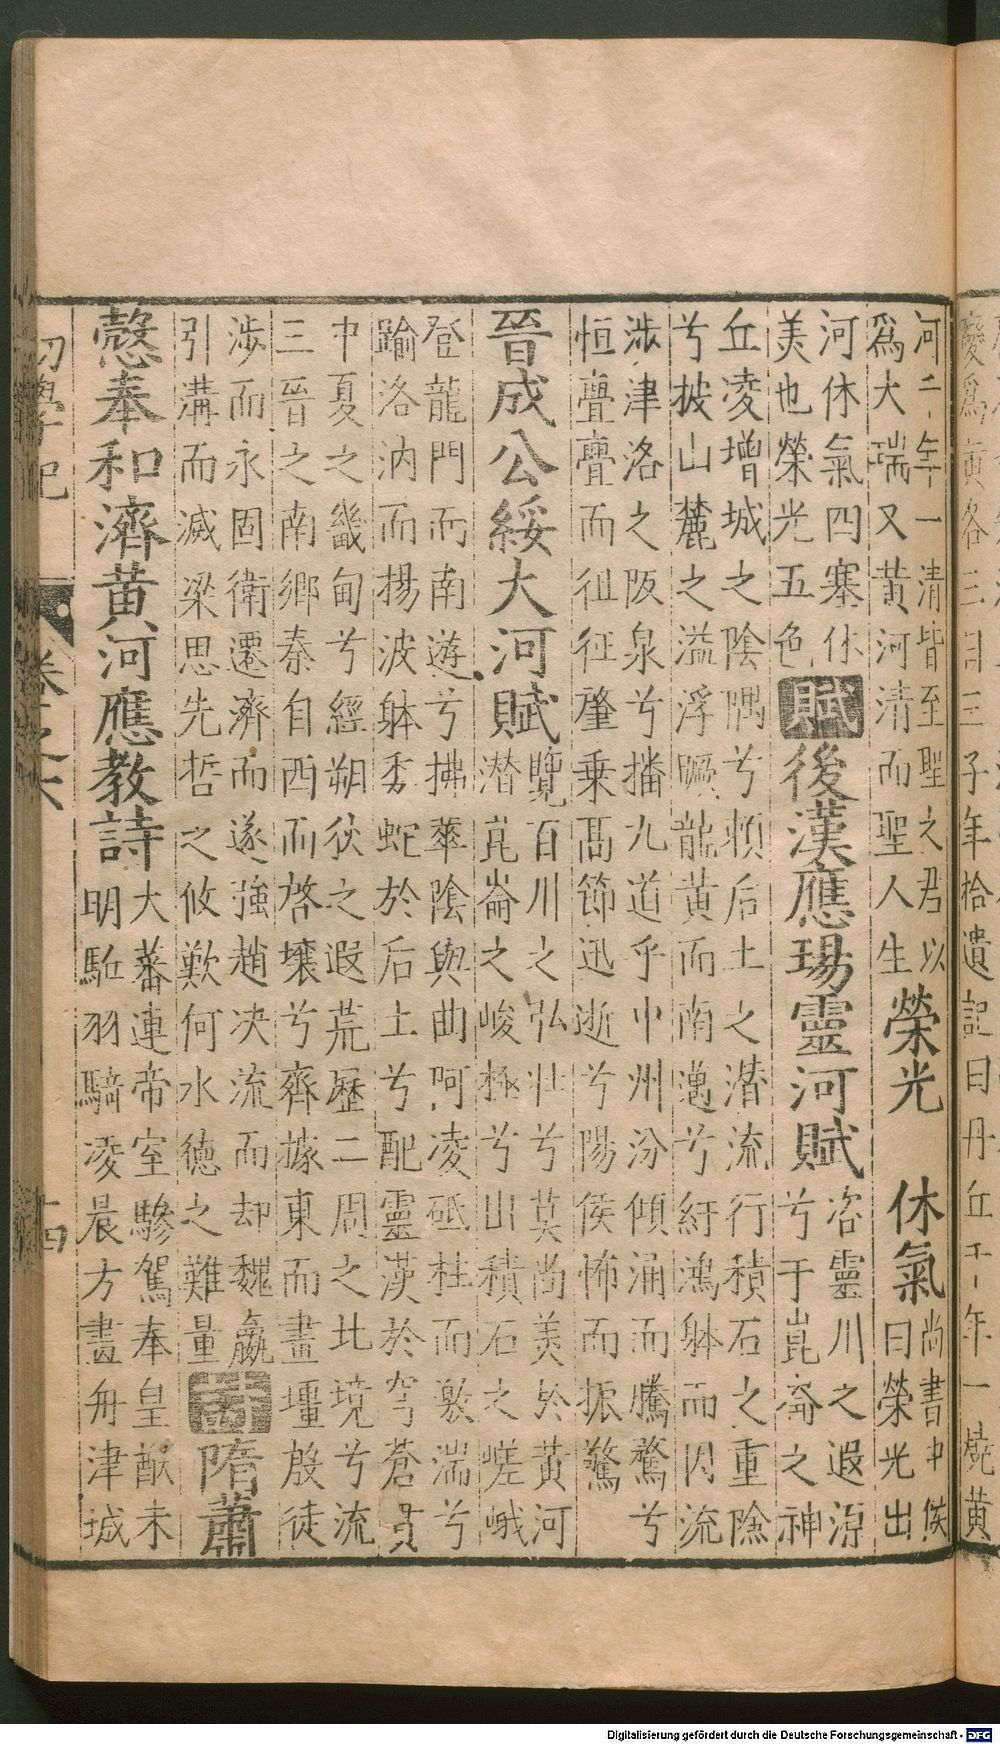 子年拾遺記曰丹丘千年一燒黃
河二年一清皆至聖之君以
爲大瑞又黃河清而聖人生
榮光　休氣
尚書中候
曰榮光出
河休氣四塞休
美也榮光五色
賦後漢應瑒靈河賦
咨靈川之遐源
兮于崑崙之神
丘凌增城之陰隅兮賴后土之潛流行積石之重險
兮披山麓之溢浮蹶龍黃而南邁兮紆鴻躰而因流
涉津洛之阪泉兮播九道乎中州汾傾涌而騰騖兮
恒亹亹而徂征肇乗高節迅逝兮陽侯怖而振驚
晉成公綏大河賦
覽百川之弘壯兮莫尚美於黃河
潜崑崙之峻極兮山積石之嵯峨
登龍門而南遊兮拂華陰與曲阿凌砥柱而激湍兮
踰洛汭而揚波躰委蛇於后土兮配靈漢於穹蒼貫
中夏之畿甸兮經朔狄之遐荒歷二周之北境兮流
三晉之南鄉秦自西而啓壤兮齊據東而畫壃殷徒
涉而永固衛遷濟而遂強趙决流而却魏嬴
引溝而滅梁思先哲之攸歎何水德之難量
詩隋蕭
慤奉和濟黃河應教詩
大蕃連帝室驂駕奉皇猷未
明駈羽騎淩晨方畫舟津城
初學記
卷之六
十四
Digitalisierung gefördert durch die Deutsche Forschungsgemeinschaft - DFG